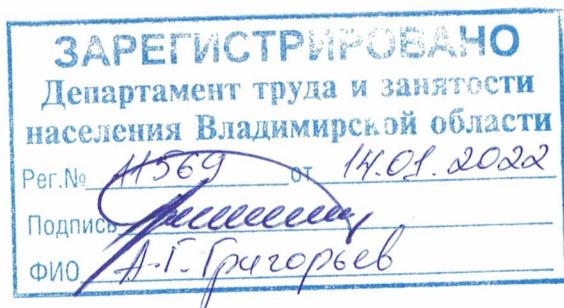 ЗАРЕГИСТРИРОВАНО
Департамент труда и занятости
населения Владимирской области
Рег.№ 11569 от 14.01.2022
Подпись
ФИО А.Г. Григорьев